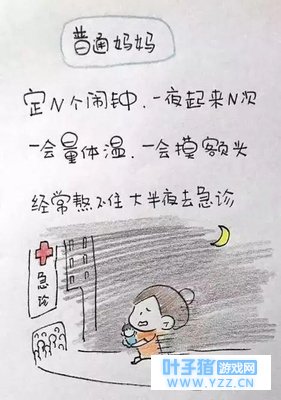 普通妈妈
定N个闹钟.一夜起来N次
一会量体温.一会摸额头
经常熬不住大半夜去急诊
急诊
叶子猪游戏网
WWW.YZZ.CN